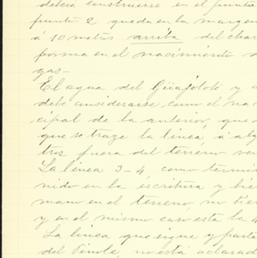 debía construirse en el punto
punto 2 queda en la margen
á 10 metros arriba del char
forma en el nacimiento d
gas-
El agua del Güajolote y a
debe considerarse como el nac
cipal de la anterior, que
que se traze la linea á alg
tros fuera del terreno
La linea 3-4, como termi
nido en la escritura y
mano en el terreno, no tien
y en el mismo caso esta la 4
La linea que sigue y parte
del Pinole, no está aclarad